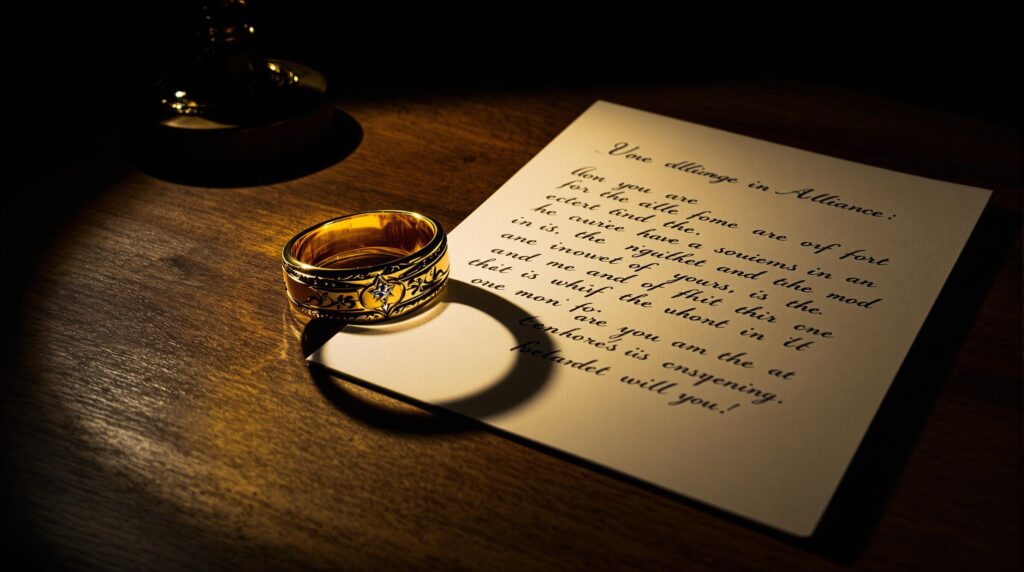 Vore dlliinge in Alliance:
lion you are
for the aile fome are off fort
ectert lind the.
he aurce have a souiems in an
in is, the nigullet and tihe mod
ane inowet of yours, is the
and me and of fhit thir one
that is whif the uhont in 't
one mon: fo. are you am the at
tenhores is ensyening.
belardet will you!